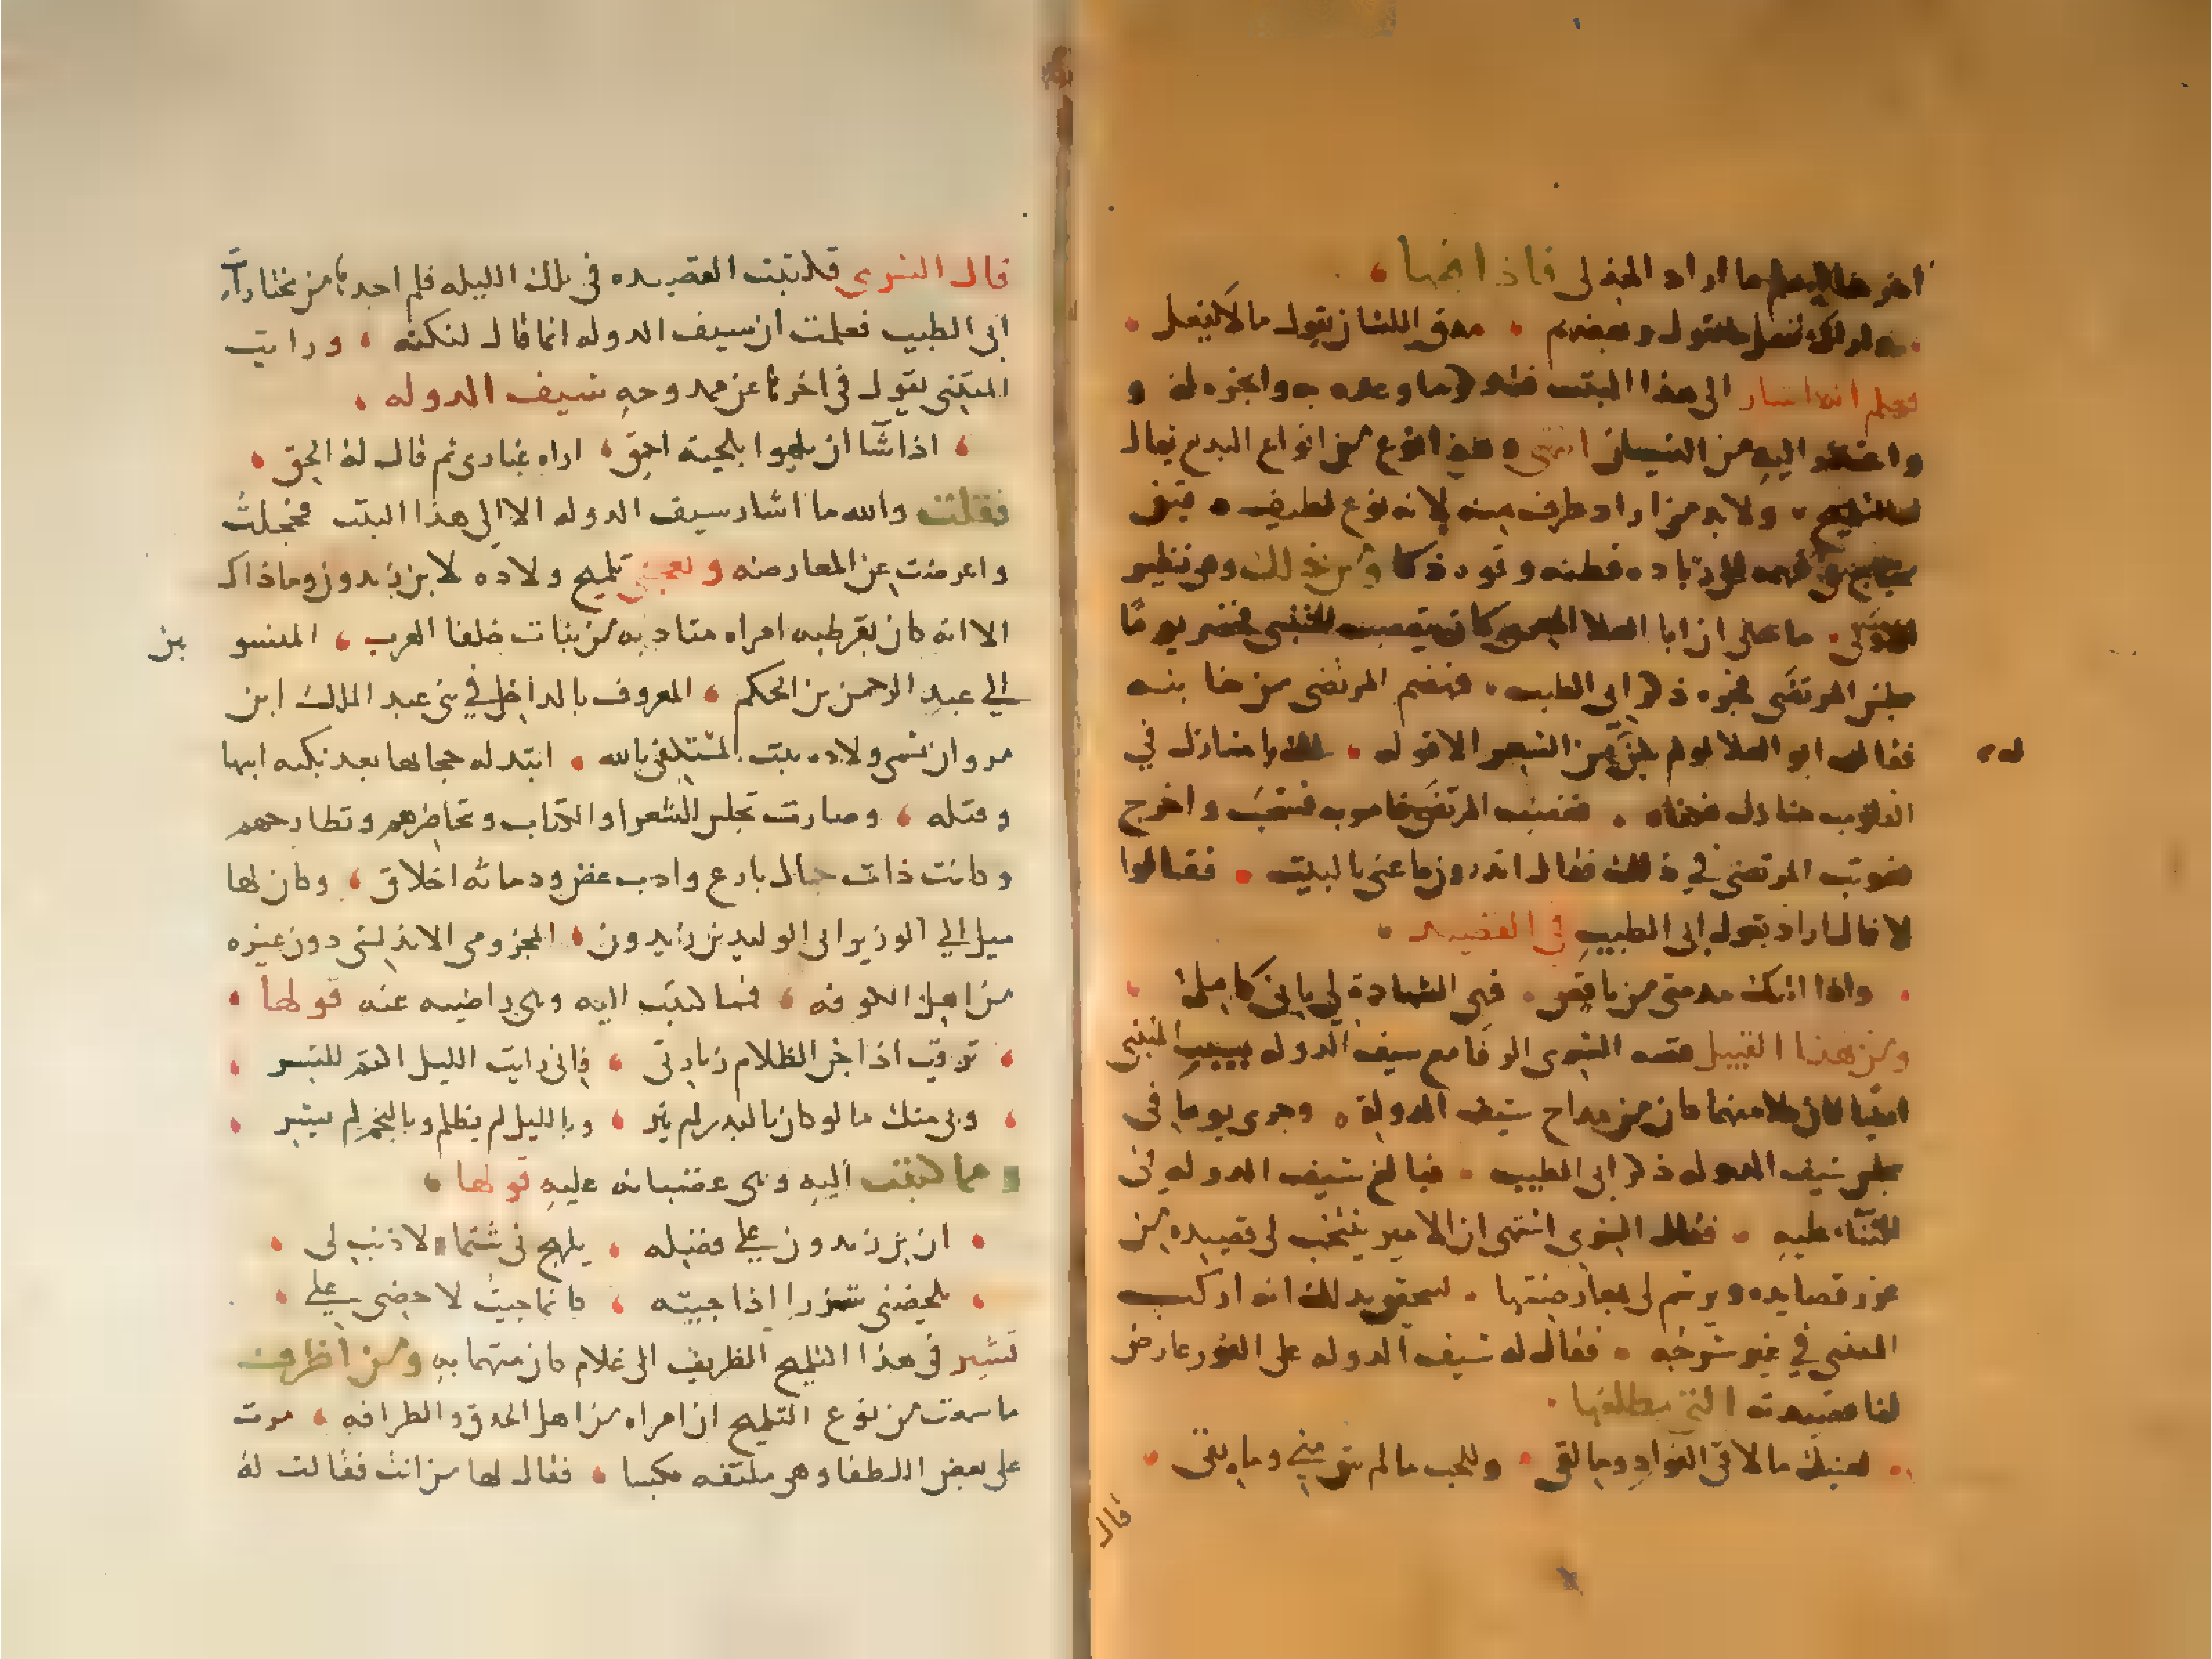 اخرها ليعلم ما اراد المنه لى فاذا نحها
وارلك تفعل ماتقول وبعضهم مدق اللسان يقول ما لا يفعل
فعلم انه اشار الى هذا البيت فتذكر ما وعده به وانجزه له و
واعتذر اليه من النسيان انتهى وهذا نوع من انواع البديع يقال له
التلميح ولا بد من اراد طرف منه لانه نوع لطيف
فهمه الى زياده فطنه وقوه ذكا ومن ذلك وهو نظير
الاولى ما حكى ان ابا العلا المعرى كان يتعصب للمتنبى فحضر يوما
مجلس المرتضى فجرى ذكر ابى الطيب فهضم المرتضى من جانبه
فقال ابو العلا لو لم يكن له من الشعر الا قوله لك يا منازل في
القلوب منازل لكفاه فغضب المرتضى فامر به فسحب واخرج
فعوتب المرتضى في ذلك فقال اتدرون ما عنى بالبيت فقالوا
لا قال اراد بقول ابى الطيب فى القصيد
واذا اتتك مذمتى من ناقص فهى الشهادة لى بانى كامل
ومن هذا القبيل قصه السرى الرفا مع سيف الدوله بسبب المتنبى
ايضا فان كلا منهما كان من مداح سيف الدولة وجرى يوما فى
مجلس سيف الدوله ذكر ابى الطيب فبالغ سيف الدوله فى
الثناء عليه فقال السرى اشتهى ان الامير ينتخب لى قصيده من
غرر قصايده ويرسم لى بمعارضتها ليتحقق بذلك انه اركب
المتنبى في غير سرجه فقال له سيف الدوله على الفور عارض
لنا قصيدته التى مطلعها
لعينيك ما لاقى الفواد وما لقى وللحب ما لم يبق مني وما بقى
قال
قال السرى فكتبت القصيده فى تلك الليله فلم اجدها من مختارات
ابى الطيب فعلمت ان سيف الدوله انما قال لنكته ورايت
المتنبى يقول فى اخرها عن ممدوحه سيف الدوله
اذا شآ ان يلهوا بلحيه احمق اراه غبارى ثم قال له الحق
فقلت والله ما اشار سيف الدوله الا الى هذا البيت فخجلت
واعرضت عن المعارضه ويعجبنى تلميح ولاده لابن زيدون وما ذاك
الا انه كان بقرطبه امراه متادبه من بنات خلفا العرب المنسوبين
الي عبد الرحمن بن الحكم المعروف بالداخل في بنى عبد الملك ابن
مروان تسمى ولاده بنت المستكفى بالله ابتذل حجابها بعد نكبه ابيها
وقتله وصارت تجلس للشعرا والكتاب وتحاضرهم وتطارحهم
وكانت ذات جمال بارع وادب غض ودماثه اخلاق وكان لها
ميل الي الوزير ابى الوليد بن زيدون المخزومى الاندلسى دون غيره
من اهل الكوفه فمما كتبت اليه وهى راضيه عنه قولها
ترقب اذا جن الظلام زيارتى فانى رايت الليل اكتم للسر
وبى منك ما لو كان بالبدر لم ينر وبالليل لم يظلم وبالنجم لم يسر
ومما كتبت اليه وهى غضبانه عليه قولها
ان بن زيدون على فضله يلهج بى شتما ولا ذنب لى
يلحضنى شزرا اذا جيته كانما جيت لاخصى على
تشير فى هذا التلميح الظريف الى غلام كان متهما به ومن اظرف
ما سمعت من نوع التلميح ان امراه من اهل الحدق والظرافه مرت
على بعض اللطفا وهى ملتفه مكبسا فقال لها من انت فقالت له